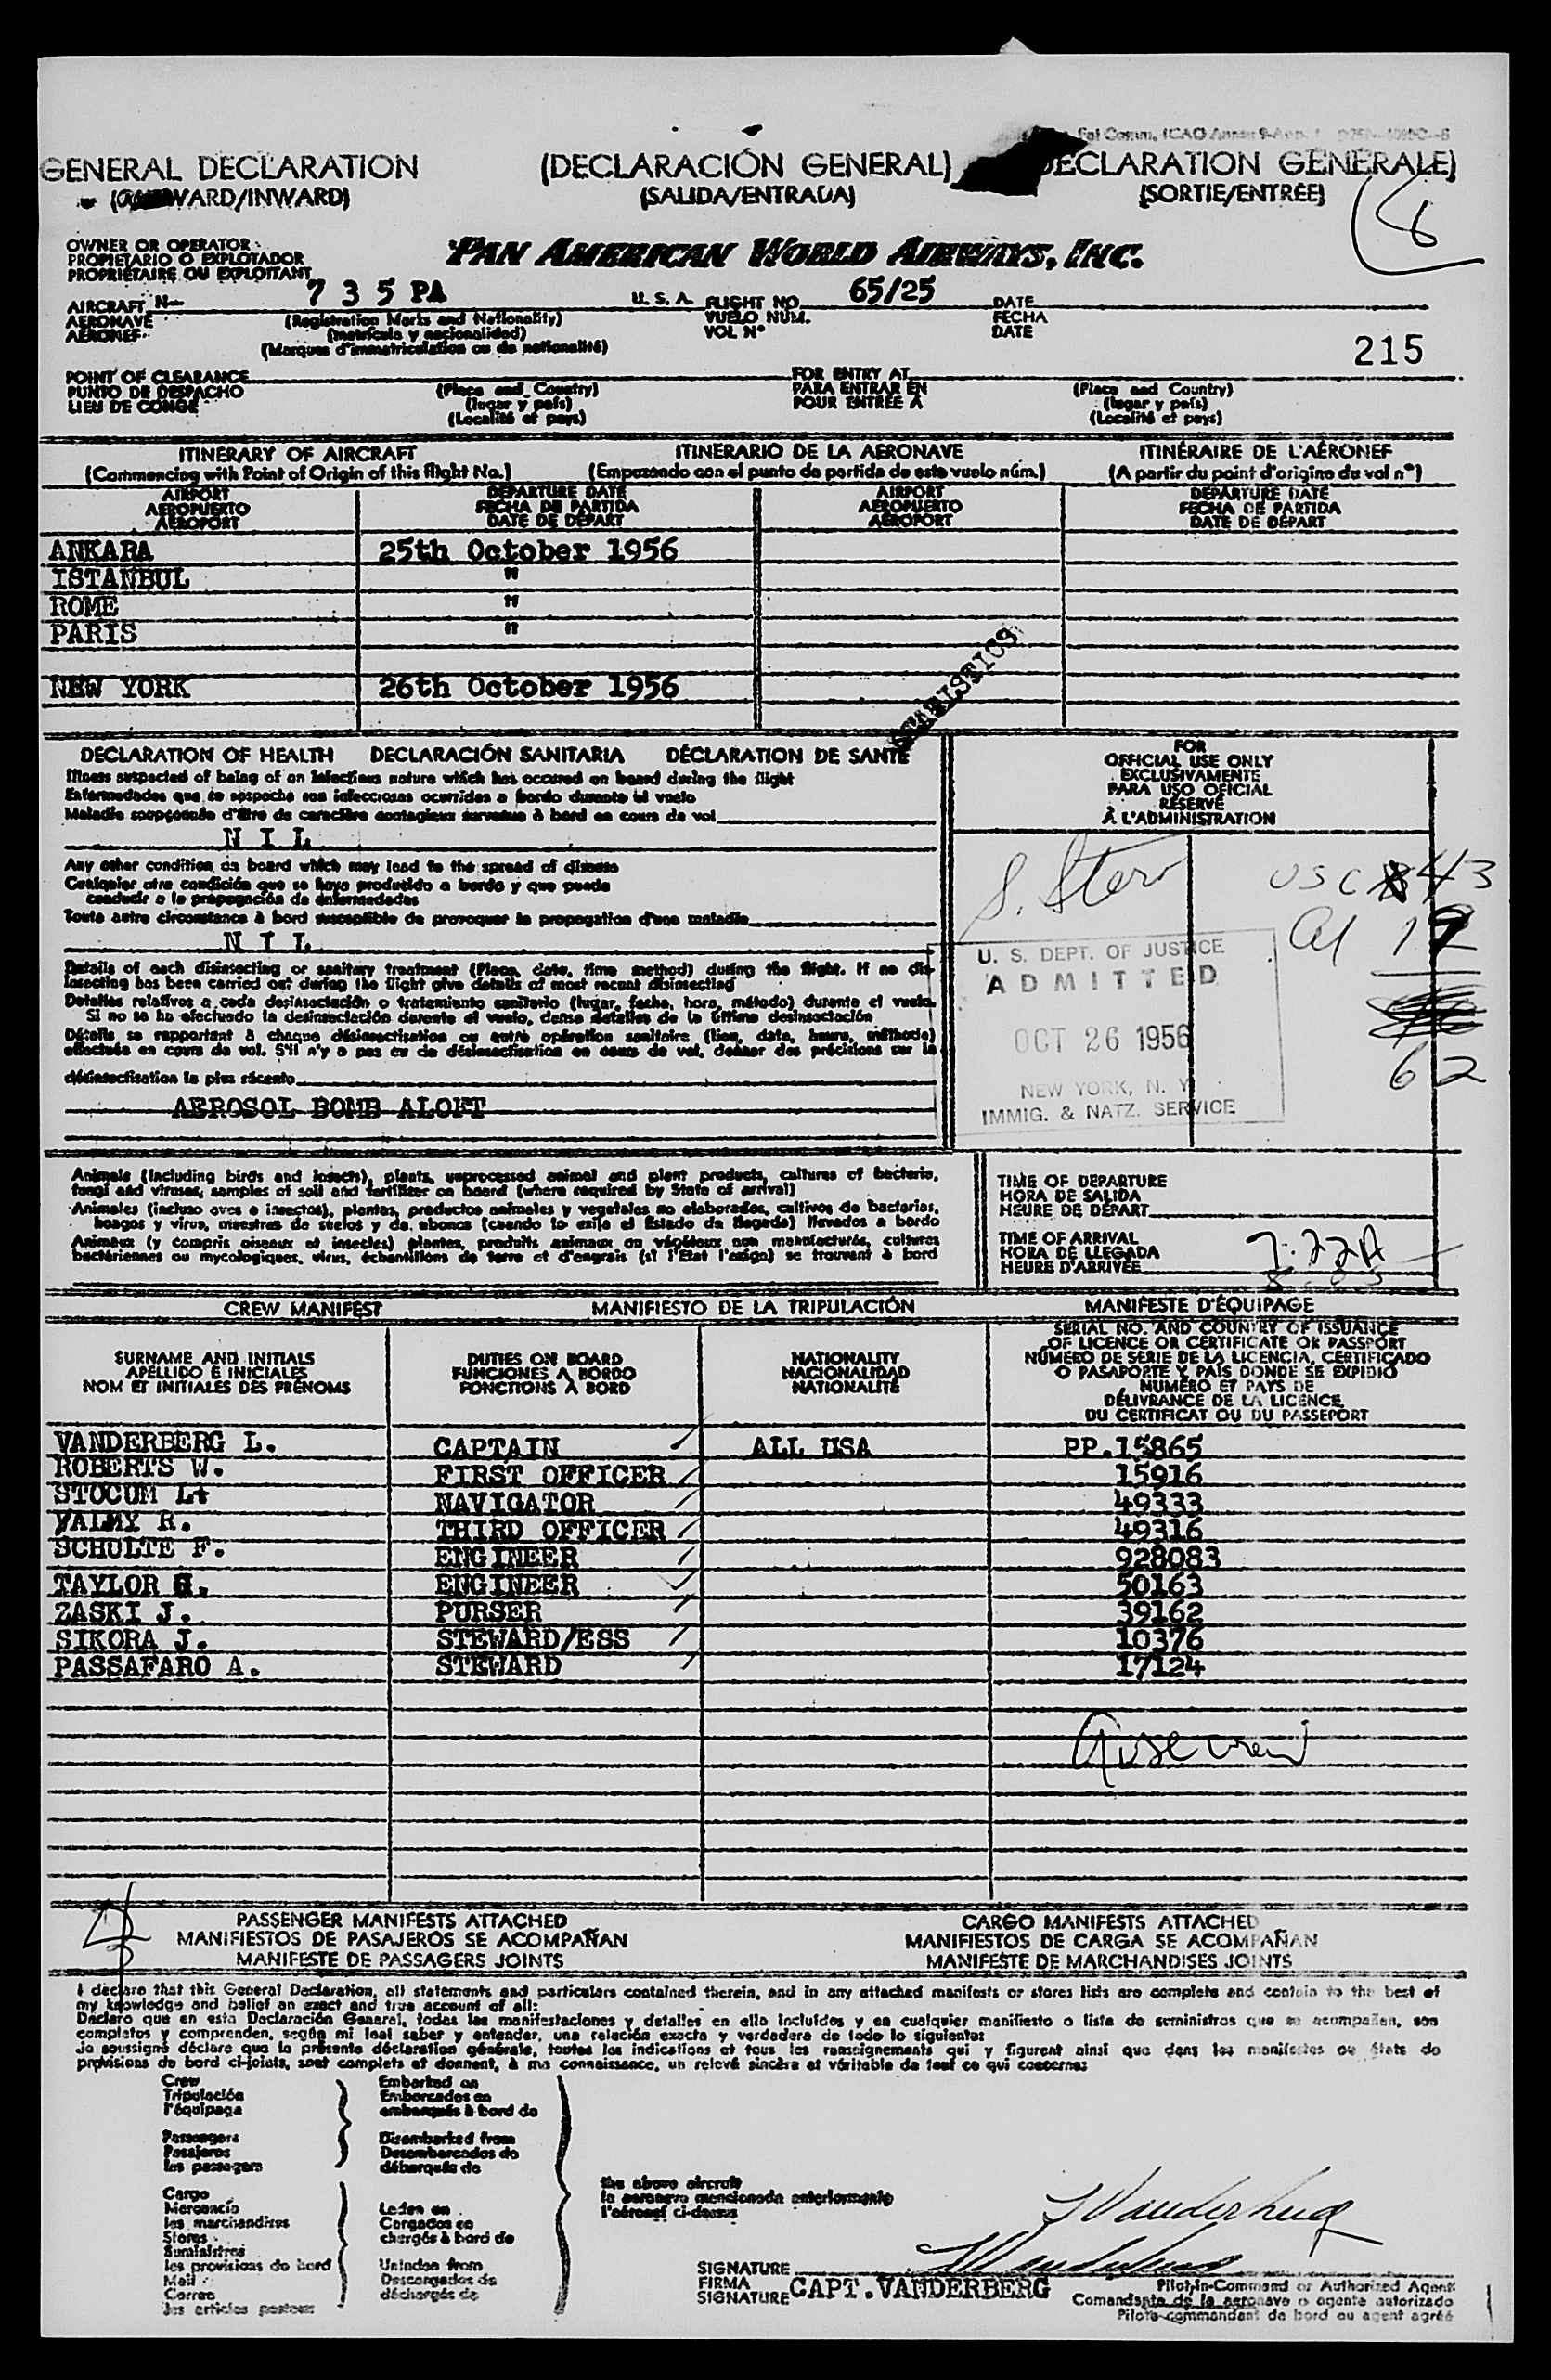 GENERAL DECLARATION (DECLARACIÓN GENERAL) DECLARATION GÉNÉRALE)
WARD/INWARD) (SALIDA/ENTRADA) (SORTIE/ENTRÉE)
OWNER OR OPERATOR
PROPIETARIO O EXPLOTADOR PAN AMERICAN WORLD AIRWAYS, INC.
PROPRIÉTAIRE OU EXPLOITANT
AIRCRAFT N 735 PA U. S. A. FLIGHT NO. 65/25 DATE
AERONAVE (Registration Marks and Nationality) VUELO NUM. FECHA
AÉRONEF (matrícula y nacionalidad) VOL N° DATE
(Marques d'immatriculation ou de nationalité) 215
POINT OF CLEARANCE FOR ENTRY AT
PUNTO DE DESPACHO (Place and Country) PARA ENTRAR EN (Place and Country)
LIEU DE CONGÉ (lugar y país) POUR ENTRÉE À (lugar y país)
(Localité et pays) (Localité et pays)
ITINERARY OF AIRCRAFT ITINERARIO DE LA AERONAVE ITINÉRAIRE DE L'AÉRONEF
(Commencing with Point of Origin of this flight No.) (Empezando con el punto de partida de este vuelo núm.) (A partir du point d'origine du vol n°)
AIRPORT DEPARTURE DATE AIRPORT DEPARTURE DATE
AEROPUERTO FECHA DE PARTIDA AEROPUERTO FECHA DE PARTIDA
AÉROPORT DATE DE DÉPART AÉROPORT DATE DE DÉPART
ANKARA 25th October 1956
ISTANBUL "
ROME "
PARIS "
NEW YORK 26th October 1956
STATISTICS
DECLARATION OF HEALTH DECLARACIÓN SANITARIA DÉCLARATION DE SANTÉ
Illness suspected of being of an infectious nature which has occured on board during the flight
Enfermedades que se sospecha son infecciosas ocurridas a bordo durante el vuelo
Maladie soupçonnée d'être de caractère contagieux survenue à bord en cours de vol
N I L
Any other condition on board which may lead to the spread of disease
Cualquier otra condición que se haya producido a bordo y que puede
conducir a la propagación de enfermedades
Toute autre circonstance à bord susceptible de provoquer la propagation d'une maladie
N I L
Details of each disinsecting or sanitary treatment (Place, date, time method) during the flight. If no dis-
insecting has been carried out during the flight give details of most recent disinsecting
Detalles relativos a cada desinsectación o tratamiento sanitario (lugar, fecha, hora, método) durante el vuelo.
Si no se ha efectuado la desinsectación durante el vuelo, dense detalles de la última desinsectación
Détails se rapportant à chaque désinsectisation ou autre opération sanitaire (lieu, date, heure, méthode)
effectuée en cours de vol. S'il n'y a pas eu de désinsectisation en cours de vol, donner des précisions sur la
désinsectisation la plus récente
AEROSOL BOMB ALOFT
FOR
OFFICIAL USE ONLY
EXCLUSIVAMENTE
PARA USO OFICIAL
RÉSERVÉ
À L'ADMINISTRATION
USC 43
Al 19
62
U. S. DEPT. OF JUSTICE
ADMITTED
OCT 26 1956
NEW YORK, N. Y.
IMMIG. & NATZ. SERVICE
Animals (including birds and insects), plants, unprocessed animal and plant products, cultures of bacteria,
fungi and viruses, samples of soil and fertilizer on board (where required by State of arrival)
Animales (incluso aves e insectos), plantas, productos animales y vegetales no elaborados, cultivos de bacterias,
hongos y virus, muestras de suelos y de abonos (cuando lo exija el Estado de llegada) llevados a bordo
Animaux (y compris oiseaux et insectes) plantes, produits animaux ou végétaux non manufacturés, cultures
bactériennes ou mycologiques, virus, échantillons de terre et d'engrais (si l'Etat l'exige) se trouvant à bord
TIME OF DEPARTURE
HORA DE SALIDA
HEURE DE DÉPART
TIME OF ARRIVAL
HORA DE LLEGADA 7:22A
HEURE D'ARRIVÉE
CREW MANIFEST MANIFIESTO DE LA TRIPULACIÓN MANIFESTE D'ÉQUIPAGE
SURNAME AND INITIALS
APELLIDO E INICIALES
NOM ET INITIALES DES PRÉNOMS
DUTIES ON BOARD
FUNCIONES A BORDO
FONCTIONS À BORD
NATIONALITY
NACIONALIDAD
NATIONALITÉ
SERIAL NO. AND COUNTRY OF ISSUANCE
OF LICENCE OR CERTIFICATE OR PASSPORT
NÚMERO DE SERIE DE LA LICENCIA, CERTIFICADO
O PASAPORTE Y PAÍS DONDE SE EXPIDIÓ
NUMÉRO ET PAYS DE
DÉLIVRANCE DE LA LICENCE,
DU CERTIFICAT OU DU PASSEPORT
VANDERBERG L. CAPTAIN ALL USA PP.15865
ROBERTS W. FIRST OFFICER 15916
STOCUM L NAVIGATOR 49333
VALMY R. THIRD OFFICER 49316
SCHULTE F. ENGINEER 928083
TAYLOR ENGINEER 50163
ZASKI J. PURSER 39162
SIKORA J. STEWARD/ESS 10376
PASSAFARO A. STEWARD 17124
PASSENGER MANIFESTS ATTACHED CARGO MANIFESTS ATTACHED
MANIFIESTOS DE PASAJEROS SE ACOMPAÑAN MANIFIESTOS DE CARGA SE ACOMPAÑAN
MANIFESTE DE PASSAGERS JOINTS MANIFESTE DE MARCHANDISES JOINTS
I declare that this General Declaration, all statements and particulars contained therein, and in any attached manifests or stores lists are complete and contain to the best of
my knowledge and belief an exact and true account of all:
Declaro que en esta Declaración General, todas las manifestaciones y detalles en ella incluídos y en cualquier manifiesto o lista de suministros que se acompañen, son
completos y comprenden, según mi leal saber y entender, una relación exacta y verdadera de todo lo siguiente:
Je soussigné déclare que la présente déclaration générale, toutes les indications et tous les renseignements qui y figurent ainsi que dans les manifestes ou états de
provisions de bord ci-joints, sont complets et donnent, à ma connaissance, un relevé sincère et véritable de tout ce qui concerne:
Crew Embarked on
Tripulación Embarcados en
l'équipage embarqués à bord de
Passengers Disembarked from
Pasajeros Desembarcados de
les passagers débarqués de
the above aircraft
la aeronave mencionada anteriormente
l'aéronef ci-dessus
Cargo
Mercancía Laden on
les marchandises Cargados en
Stores chargés à bord de
Suministros
les provisions de bord Unladen from
Mail Descargados de
Correo déchargés de
les articles postaux
SIGNATURE
FIRMA
SIGNATURE CAPT. VANDERBERG
Pilot-in-Command or Authorized Agent
Comandante de la aeronave o agente autorizado
Pilote-commandant de bord ou agent agréé